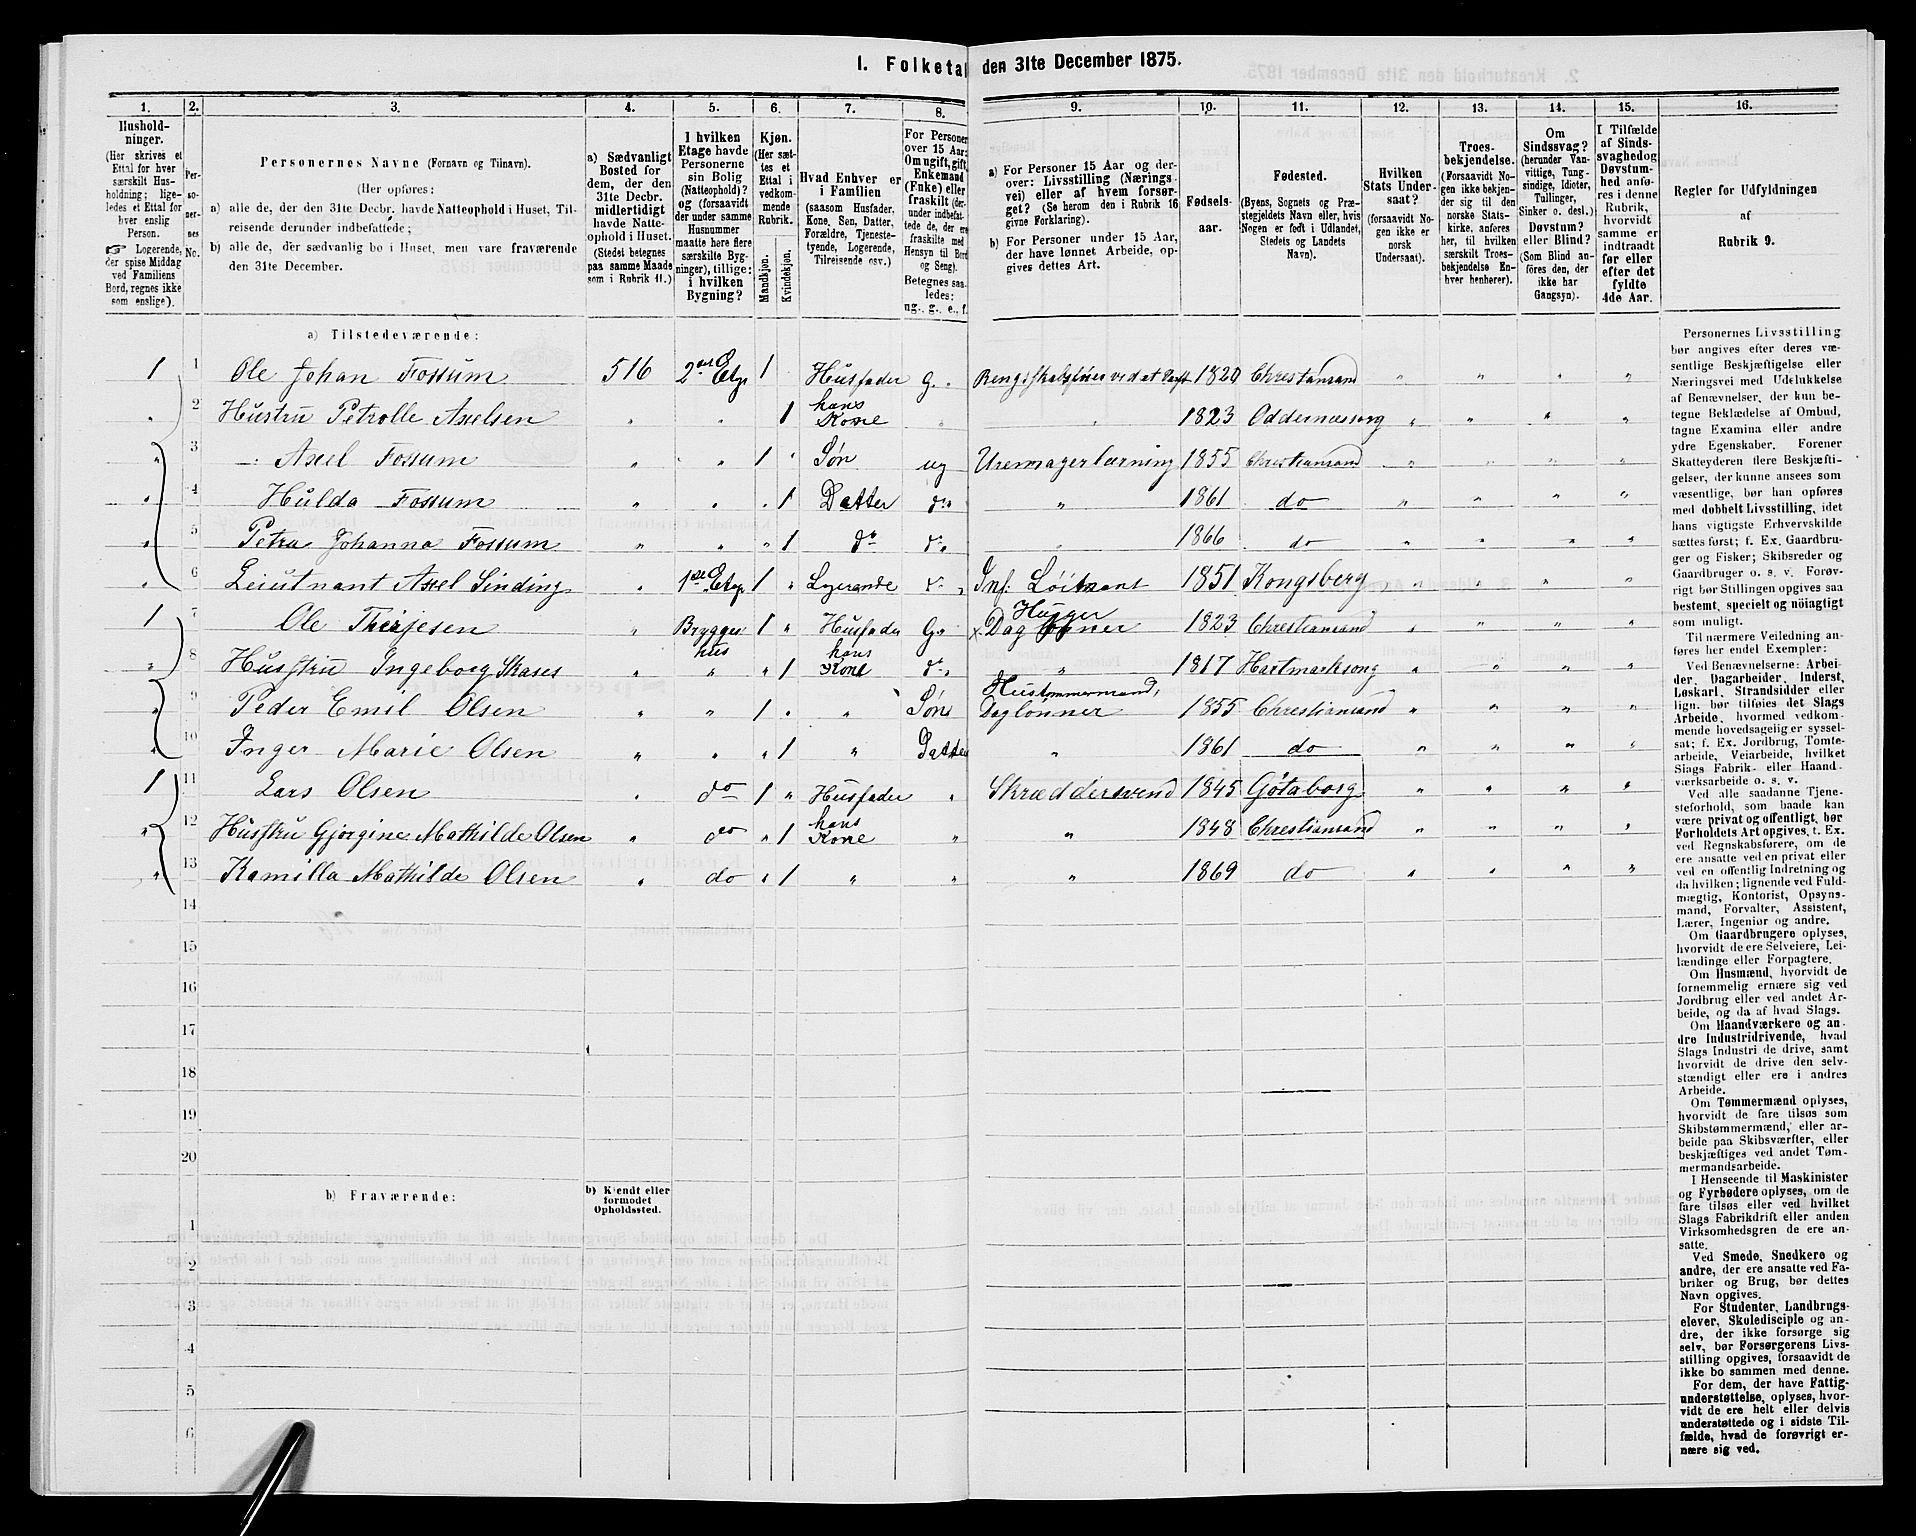 I. Folketal den 31te December 1875.
1. 2. 3. 4. 5. 6. 7. 8. 9. 10. 11. 12. 13. 14. 15. 16.
Hushold-
ninger.
(Her skrives et
Ettal for hver
særskilt Hus-
holdning; lige-
ledes et Ettal for
hver enslig
Person.
☞ Logerende,
der spise Middag
ved Familiens
Bord, regnes ikke
som enslige).
Per-
so-
ner-
nes
No.
Personernes Navne (Fornavn og Tilnavn).
(Her opføres:
a) alle de, der den 31te Decbr. havde Natteophold i Huset, Til-
reisende derunder indbefattede;
b) alle de, der sædvanlig bo i Huset, men vare fraværende
den 31te December.
a) Sædvanligt
Bosted for
dem, der den
31te Decbr.
midlertidigt
havde Natte-
ophold i Huset.
(Stedet betegnes
paa samme Maade
som i Rubrik 11.)
I hvilken
Etage havde
Personerne
sin Bolig
(Natteophold)?
og (forsaavidt
der under samme
Husnummer
maatte høre flere
særskilte Byg-
ninger), tillige:
i hvilken
Bygning?
Kjøn.
(Her sæt-
tes et
Ettal i
vedkom-
mende
Rubrik.
Mandkjøn.
Kvindekjøn.
Hvad Enhver er
i Familien
(saasom Husfader,
Kone, Søn, Datter,
Forældre, Tjeneste-
tyende, Logerende,
Tilreisende osv.)
For Personer
over 15 Aar:
Om ugift, gift,
Enkemand
(Enke) eller
fraskilt (der-
under indbefat-
tede de, der ere
fraskilte med
Hensyn til Bord
og Seng).
Betegnes saa-
ledes:
ug., g., e., f.
a) For Personer 15 Aar og der-
over: Livsstilling (Nærings-
vei) eller af hvem forsør-
get? (Se herom den i Rubrik 16
givne Forklaring).
b) For Personer under 15 Aar,
der have lønnet Arbeide, op-
gives dettes Art.
Fødsels-
aar.
Fødested.
(Byens, Sognets og Præ-
stegjeldets Navn eller, hvis
Nogen er født i Udlandet,
Stedets og Landets
Navn).
Hvilken
Stats Under-
saat?
(forsaavidt No-
gen ikke er
norsk
Undersaat).
Troes-
bekjendelse.
(Forsaavidt No-
gen ikke bekjen-
der sig til den
norske Stats-
kirke, anføres
her, til hvilken
særskilt Troes-
bekjendelse En-
hver henhører).
Om
Sindssvag?
(herunder Van-
vittige, Tung-
sindige, Idioter,
Tullinger,
Sinker o. desl.)
Døvstum?
eller Blind?
(Som Blind an-
føres den, der
ikke har
Gangsyn).
I Tilfælde
af Sinds-
svaghed og
Døvstum-
hed anfø-
res i denne
Rubrik,
hvorvidt
samme er
indtraadt
før eller
efter det
fyldte
4de Aar.
Regler for Udfyldningen
af
Rubrik 9.
a) Tilstedeværende:
1 1 Ole Johan Fossum 516 2den Etage 1 Husfader G. 1820 Chrestiansand
2 Hustru Petrolle Axelsen 1 hans Kone 1823 Oddernessog
3 Axel Fossum 1 Søn ug Uremagerlærning 1855 Chrestiansand
4 Hulda Fossum 1 Datter do 1861 do
5 Petra Johanna Fossum 1 do do 1866 do
6 Leiutnant Axel Sinding 1ste Etage 1 Logerende do Inf. Løitnant 1851 Kongsberg
1 7 Ole Therjesen Bryggerhus 1 Husfader G. Hugger Dag 1823 Chrestiansand
8 Husstru Ingeborg Skases 1 hans Kone do 1817 Hartmarksong
9 Peder Emil Olsen 1 Søn Hustømmermand, Daglønner 1855 Chrestiansand
10 Inger Marie Olsen 1 Datter 1861 do
1 11 Lars Olsen do 1 Husfader Skræddersvend 1845 Gøtaborg
12 Husstru Gjorgine Mathilde Olsen do 1 hans Kone 1848 Chrestiansand
13 Kamilla Mathilde Olsen do 1 1869 do
14
15
16
17
18
19
20
b) Fraværende:
b) Kjendt eller
formodet
Opholdssted.
1
2
3
4
5
6
Personernes Livsstilling
bør angives efter deres væ-
sentlige Beskjæftigelse eller
Næringsvei med Udelukkelse
af Benævnelser, der kun be-
tegne Beklædelse af Ombud,
tagne Examina eller andre
ydre Egenskaber. Forener
Skatteyderen flere Beskjæfti-
gelser, der kunne ansees som
væsentlige, bør han opføres
med dobbelt Livsstilling, idet
hans vigtigste Erhvervskilde
sættes først; f. Ex. Gaardbru-
ger og Fisker; Skibsreder og
Gaardbruger o. s. v. Forøv-
rigt bør Stillingen opgives saa
bestemt, specielt og nöiagtigt
som muligt.
Til nærmere Veiledning an-
føres her endel Exempler:
Ved Benævnelserne: Arbei-
der, Dagarbeider, Inderst,
Løskarl, Strandsidder eller
lign. bør tilføies det Slags
Arbeide, hvormed vedkom-
mende hovedsagelig er syssel-
sat; f. Ex. Jordbrug, Tomte-
arbeide, Veiarbeide, hvilket
Slags Fabrik- eller Haand-
værksarbeide o. s. v.
Ved alle saadanne Tjene-
steforhold, som baade kan
være privat og offentligt, bør
Forholdets Art opgives, t. Ex.
ved Regnskabsførere, om de
ere ansatte ved en privat eller
ved en offentlig Indretning og
da hvilken; lignende ved Fuld-
mægtig, Kontorist, Opsyns-
mand, Forvalter, Assistent,
Lærer, Ingeniør og andre.
Om Gaardbrugere oplyses,
hvorvidt de ere Selveiere, Lei-
lændinge eller Forpagtere.
Om Husmænd, hvorvidt de
fornemmelig ernære sig ved
Jordbrug eller ved andet Ar-
beide, og da af hvad Slags.
Om Haandværkere og an-
dre Industridrivende, hvad
Slags Industri de drive, samt
hvorvidt de drive den selv-
stændigt eller ere i andres
Arbeide.
Om Tømmermænd oplyses,
hvorvidt de fare tilsøs som
Skibstømmermænd, eller ar-
beide paa Skibsværfter, eller
beskjæftiges ved andet Tøm-
mermandsarbeide.
I Henseende til Maskinister
og Fyrbødere oplyses, om de
fare tilsøs eller ved hvilket
Slags Fabrikdrift eller anden
Virksomhedsgren de ere an-
satte.
Ved Smede, Snedkere og
andre, der ere ansatte ved Fa-
briker og Brug, bør dettes
Navn opgives.
For Studenter, Landbrugs-
elever, Skoledisciple og an-
dre, der ikke forsørge sig
selv, bør Forsørgerens Livs-
stilling opgives, forsaavidt de
ikke bo sammen med denne.
For dem, der have Fattig-
understøttelse, oplyses, hvor-
vidt de ere helt eller delvis
understøttede og i sidste Til-
fælde, hvad de forøvrigt er-
nære sig ved.